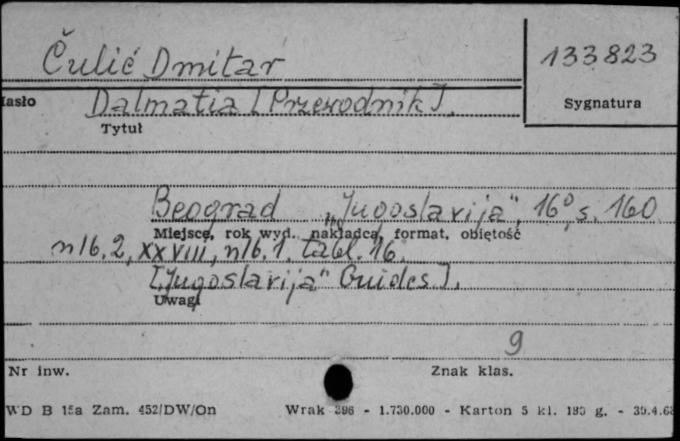 Čulić Dmitar
133823
Hasło
Dalmatia [Przewodnik].
Sygnatura
Tytuł
Beograd "Jugoslavija", 16°, s. 160
Miejsce, rok wyd., nakładca, format, objętość
nlb. 2, XXVIII, nlb. 1. tabl. 16.
["Jugoslavija" Guides].
Uwagi
9
Nr inw.
Znak klas.
WD B 15a Zam. 452/DW/On Wrak 396 - 1.730.000 - Karton 5 kl. 180 g. - 30.4.68